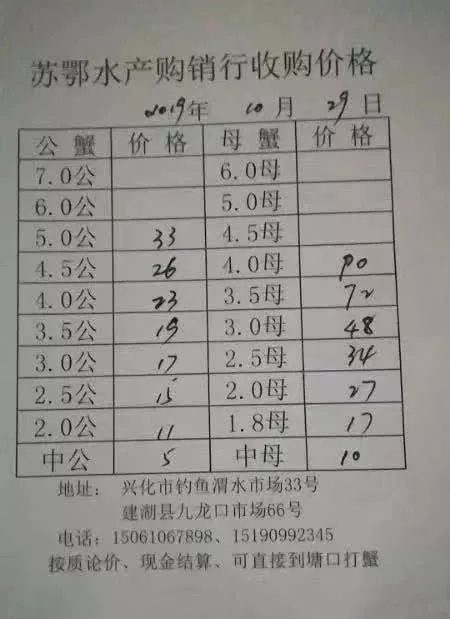 苏鄂水产购销行收购价格
2019年 10月 29日
公蟹 价格 母蟹 价格
7.0公 6.0母
6.0公 5.0母
5.0公 33 4.5母
4.5公 26 4.0母 90
4.0公 23 3.5母 72
3.5公 19 3.0母 48
3.0公 17 2.5母 34
2.5公 15 2.0母 27
2.0公 11 1.8母 17
中公 5 中母 10
地址： 兴化市钓鱼渭水市场33号
建湖县九龙口市场66号
电话：15061067898、15190992345
按质论价、现金结算、可直接到塘口打蟹